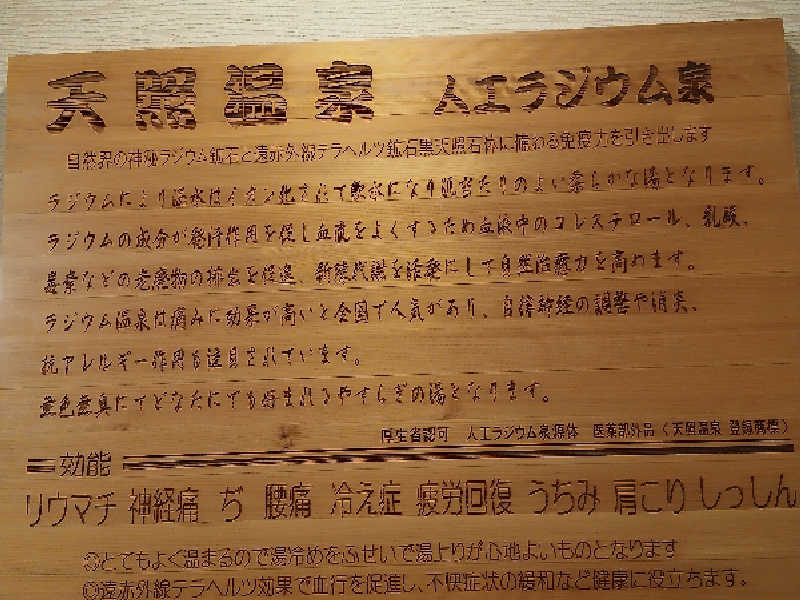 天照温泉 人工ラジウム泉
自然界の神秘ラジウム鉱石と遠赤外線テラヘルツ鉱石黒天照石術に秘める免疫力を引き出します
ラジウムにより温水はイオン化されて軟水になり肌当たりのよい柔らかな湯となります。
ラジウムの成分が発汗作用を促し血流をよくするため血液中のコレステロール、乳酸、
毒素などの老廃物の排出を促進、新陳代謝を活発にして自然治癒力を高めます。
ラジウム温泉は痛みに効果が高いと全国で人気があり、自律神経の調整や消炎、
抗アレルギー作用も注目されています。
無色無臭にてどなたにでも好まれるやすらぎの湯となります。
厚生省認可 人工ラジウム泉源体 医薬部外品(天照温泉 登録商標)
効能
リウマチ 神経痛 ぢ 腰痛 冷え症 疲労回復 うちみ 肩こり しっしん
◎とてもよく温まるので湯冷めをふせいで湯上りが心地よいものとなります
◎遠赤外線テラヘルツ効果で血行を促進し、不快症状の緩和など健康に役立ちます。